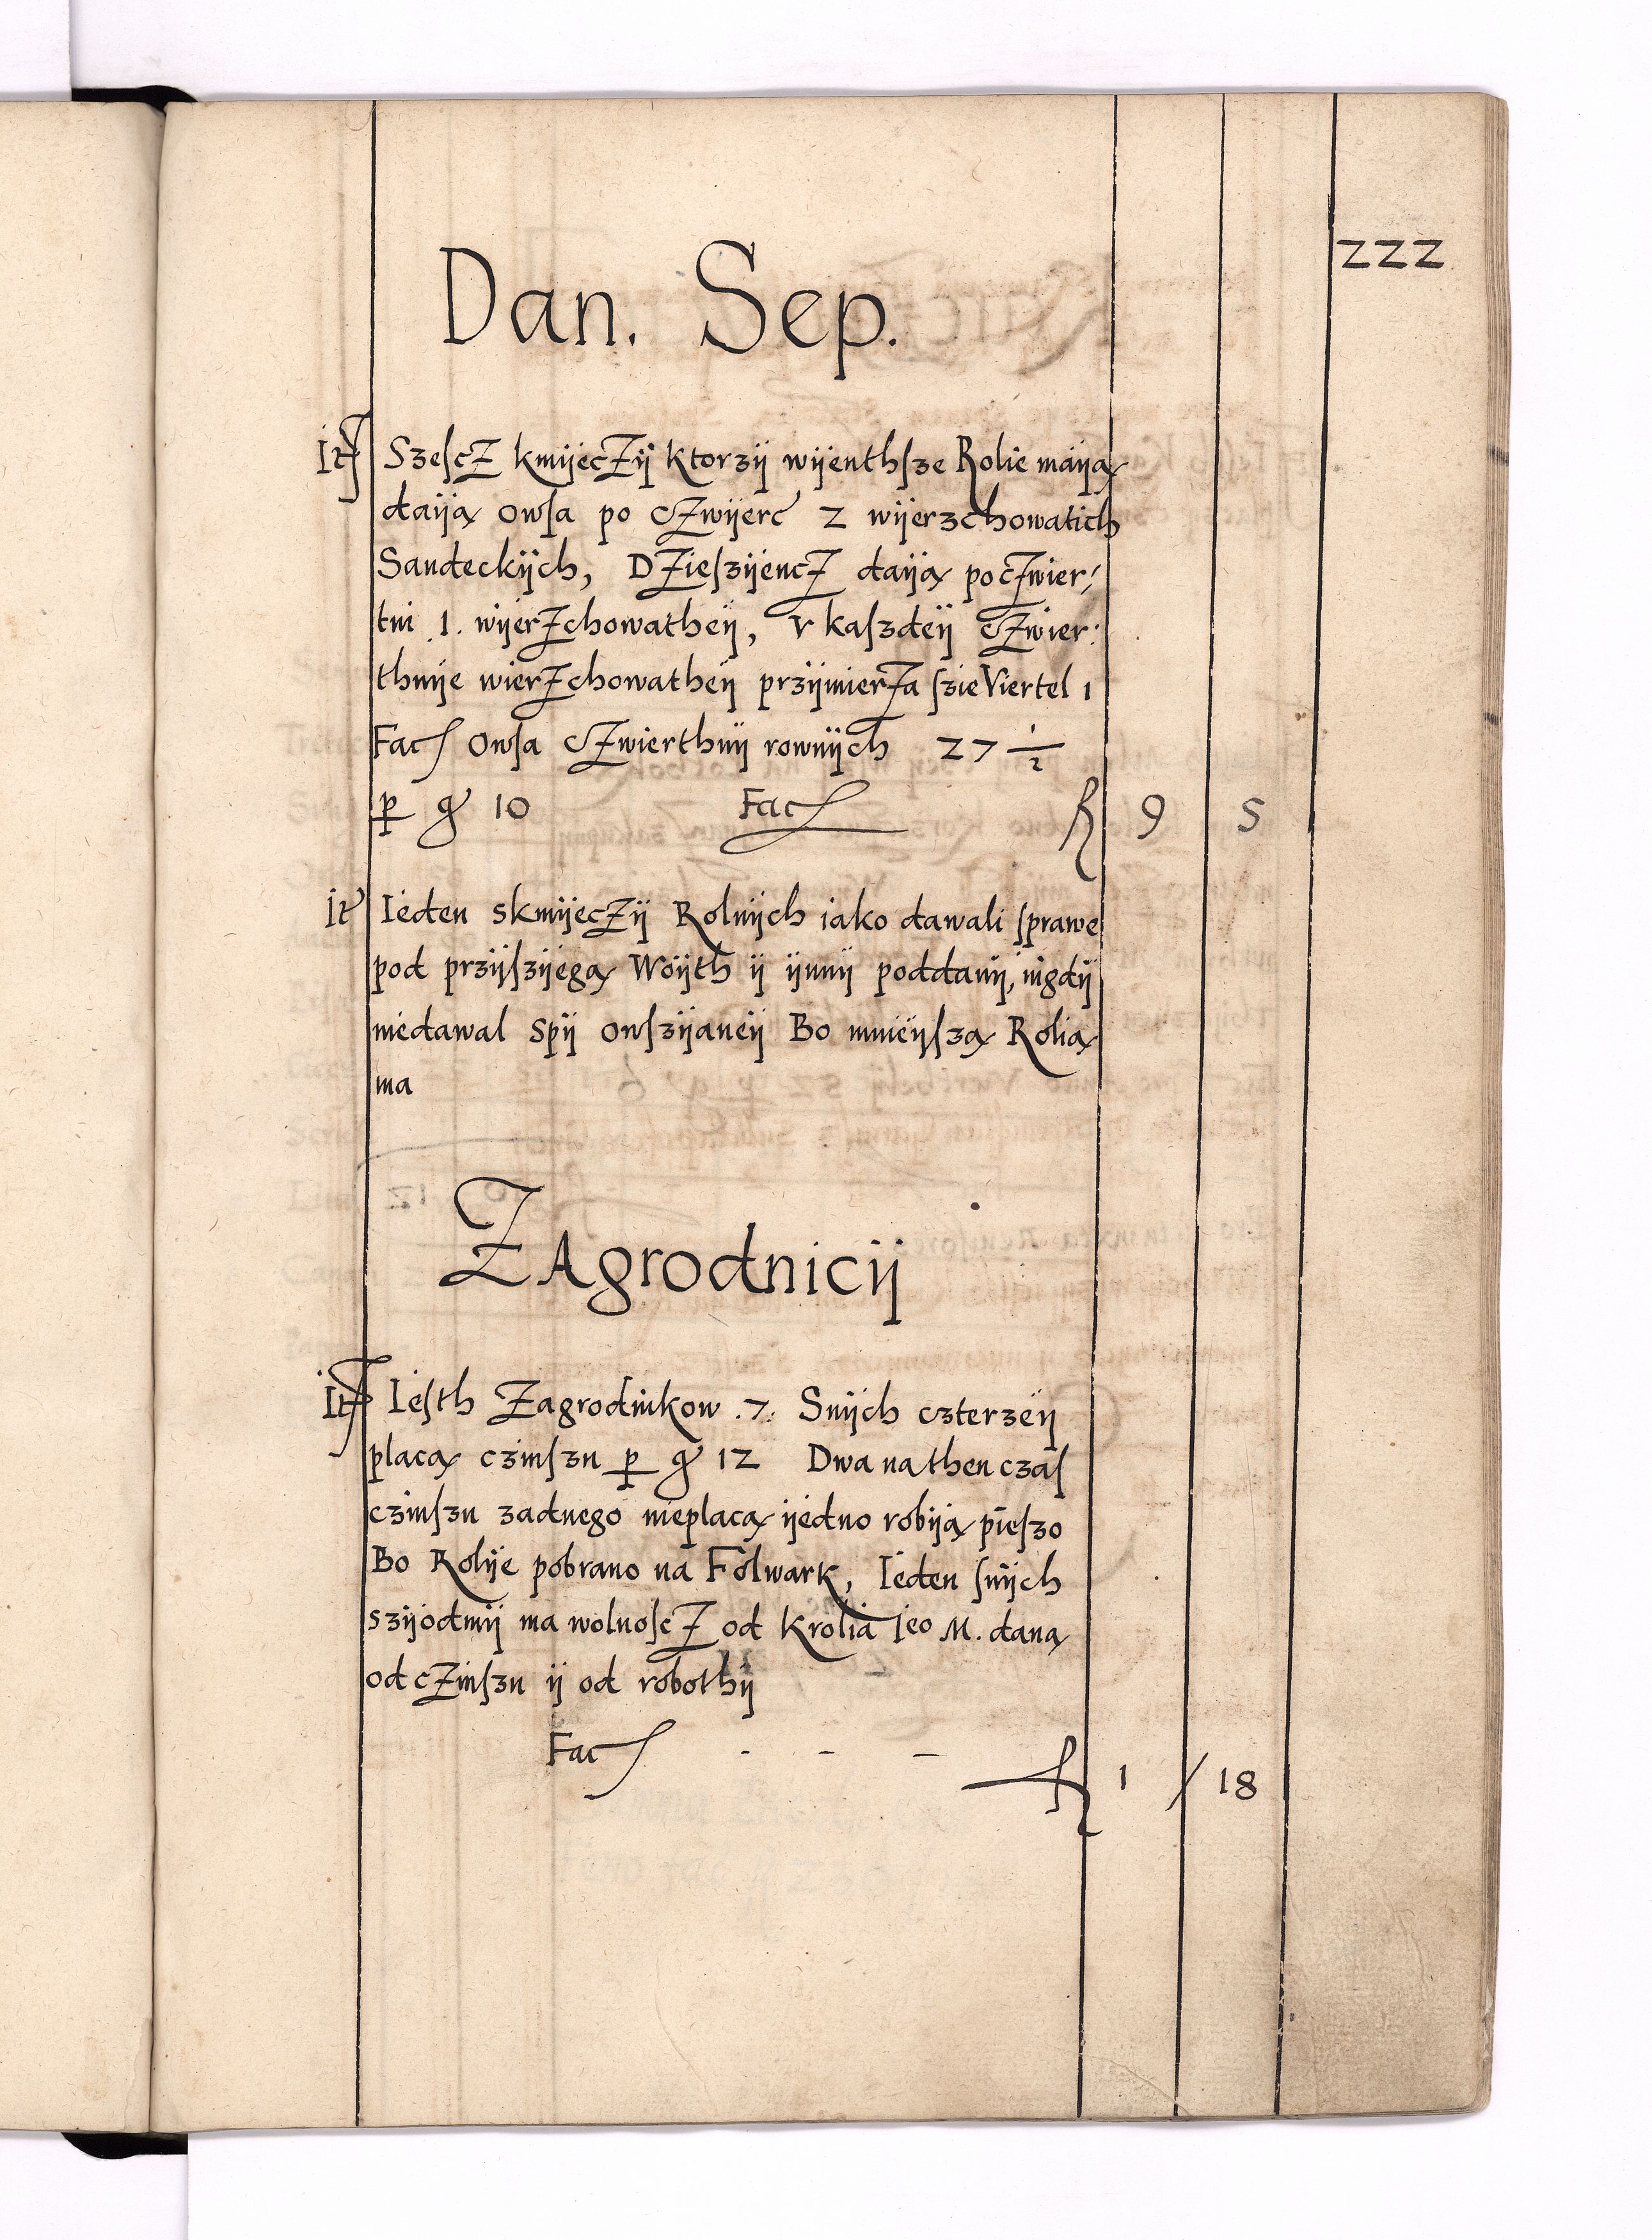 222
Dan. Sep.
It Szescz kmijeczÿ ktorzÿ wÿenthsze Rolie maÿą
daÿą owsa po czwÿerc 2 wÿerzchowatich
Sandeckÿch, Dzieszÿencz daÿą po czwier/
tni .1. wÿerzchowatheÿ, v kaszdeÿ czwier:
thnÿe wierzchowatheÿ przÿmierza szie Viertel 1
Fac owsa czwierthnÿ rownÿch 27 1/2
p gr 10 Fac fl 9 5
It Ieden skmÿeczÿ Rolnÿch iako dawali sprawe
pod przÿszÿegą Woÿth ÿ ÿnnÿ poddanÿ, nigdÿ
niedawal Spÿ owszÿaneÿ Bo mnieÿszą Rolią
ma
Zagrodnicÿ
It Iesth Zagrodnikow .7. Snÿch czterzeÿ
placą czinszu p gr 12 Dwa na then czas
czinszu zadnego nieplacą ÿedno robÿą pieszo
Bo Rolÿe pobrano na Folwark, Ieden snÿch
szÿodmÿ ma wolnoscz od Krolia Ieo M. daną
od czinszu ÿ od robothÿ
Fac - - - fl 1 / 18